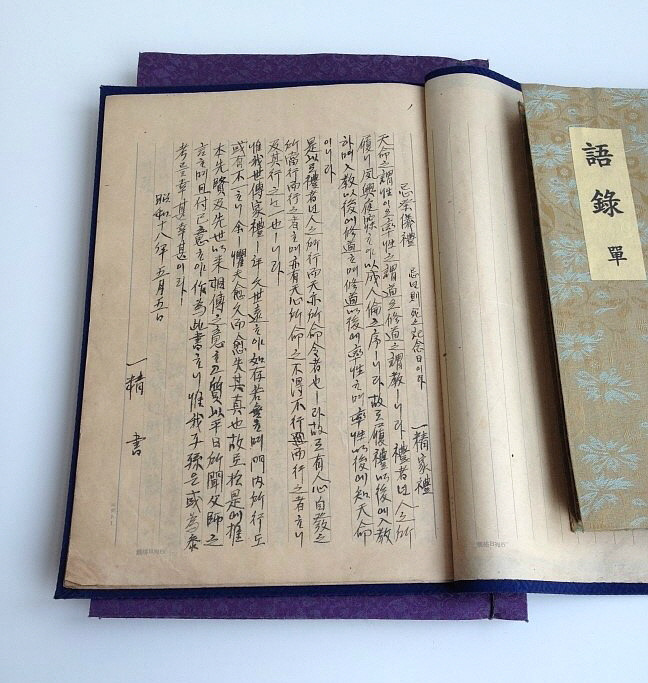 語錄 單
忌祭儀禮 忌日則死亡紀念日이라 一精家禮
天命之謂性이오率性之謂道오修道之謂教ㅣ니라禮者난人之所
履ㅣ니夙興夜寐하야以成人倫之序ㅣ니라故로履禮以後에入教
하며入教以後에修道하며修道以後에率性하며率性以後에知天命
이니라
是以로禮者난人之所行而天亦所命令者也ㅣ라故로有人心自發之
所當行而行之者하며亦有天心所命之不得不行而行之者하니
及其行之난一也ㅣ니라
惟我世傳家禮ㅣ 久世遠하야如存若無하며門內所行도
或有不一하니余ㅣ懼愈久而愈失其真也故로於是에推
本先賢及先世以來相傳之意하고質以平日所聞父師之
言하며且付己意하야作為此書하니惟我子孫은或為參
考之幸其幸甚이라
昭和十八年五月五日
一精 書